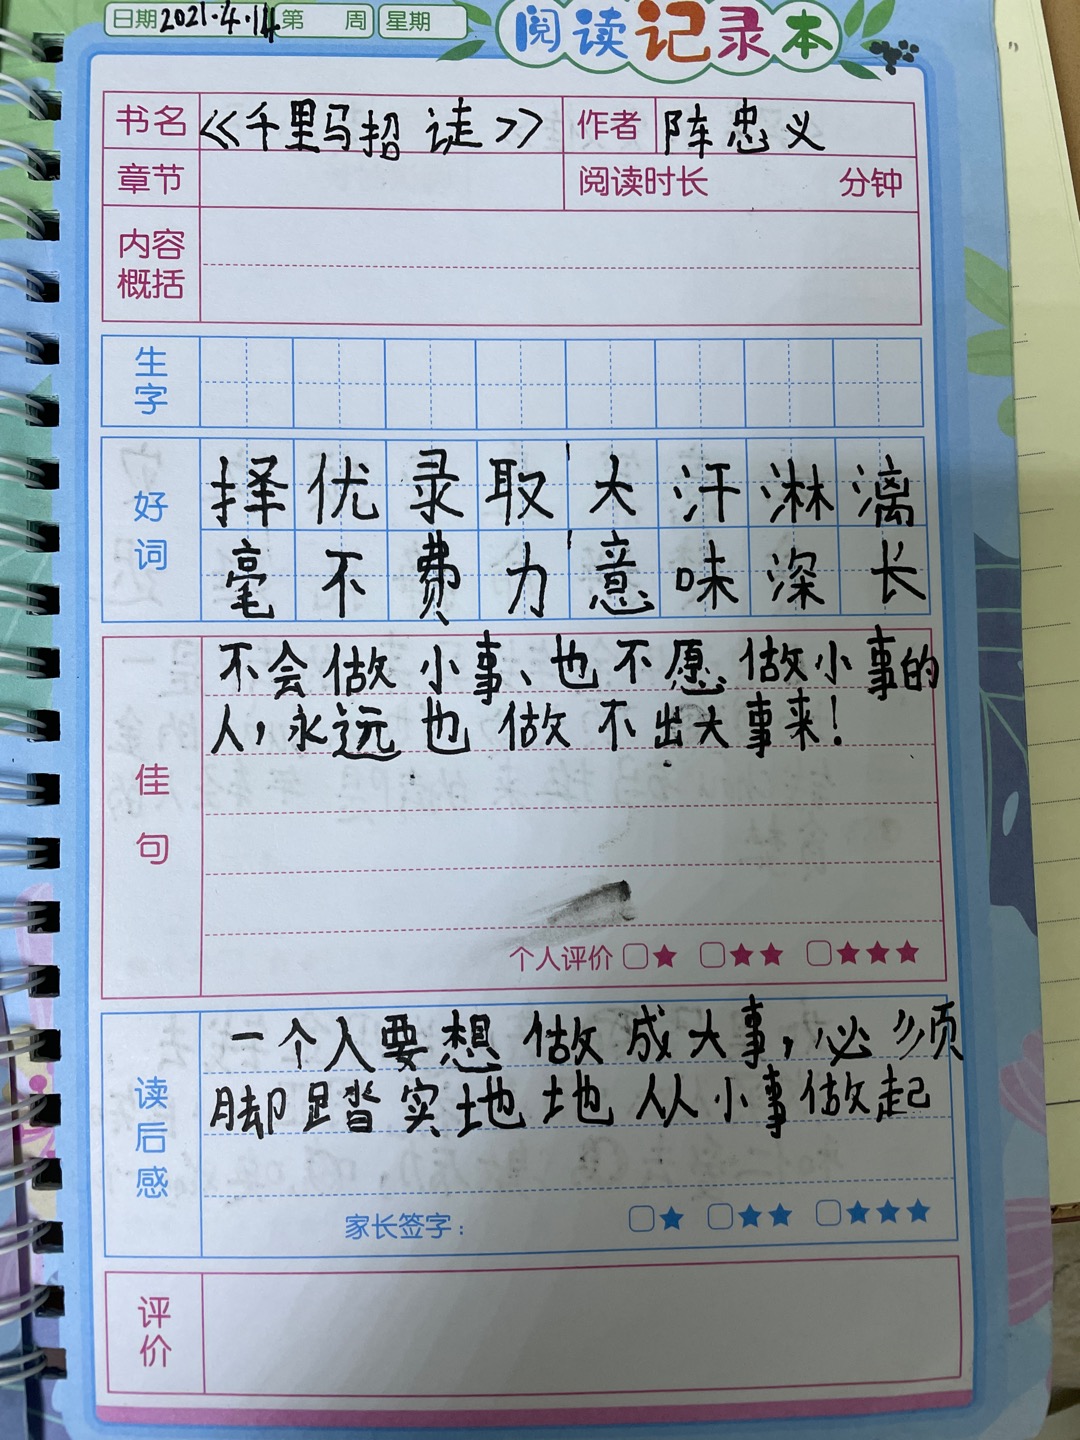 日期2021.4.14 第 周 星期
阅读记录本
书名 《千里马招 徒》 作者 阵忠义
章节 阅读时长 分钟
内容
概括
生字
好词
择优录取 大汗淋漓
毫不费力 意味深长
佳句
不会做小事、也不愿做小事的
人,永远也做不出大事来!
个人评价 ★ ★★ ★★★
读后感
一个人要想做成大事,必须
脚踏实地地从小事做起
家长签字: ★ ★★ ★★★
评价